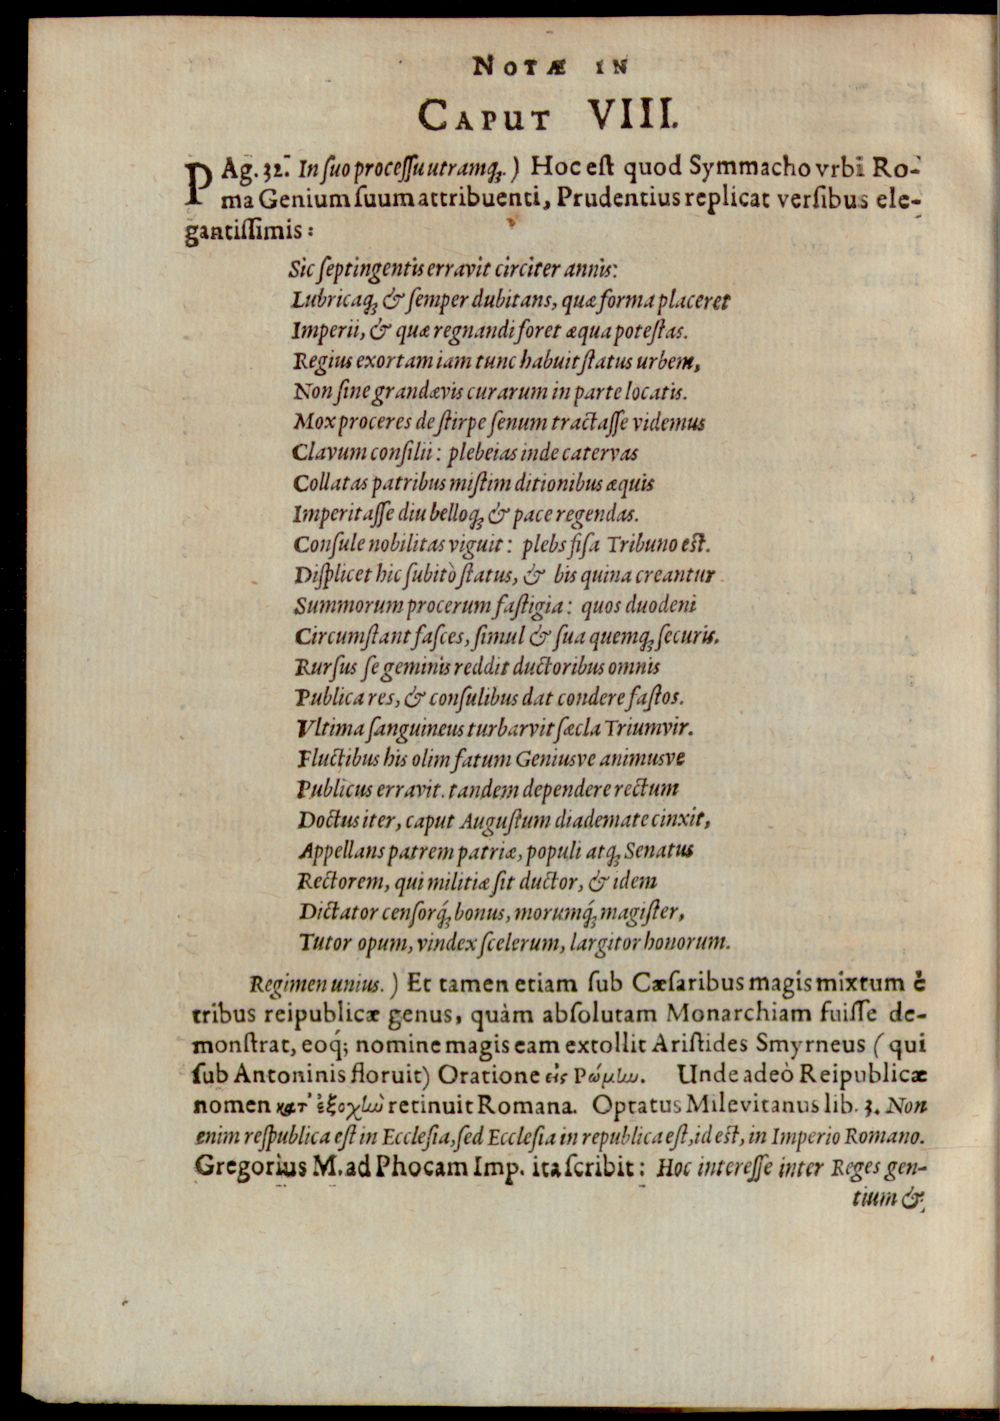 NOTÆ IN
CAPUT VIII.
PAg. 32. In ſuo proceſſu utramq́ꝫ.) Hoc eſt quod Symmacho vrbi Ro-
ma Genium ſuum attribuenti, Prudentius replicat verſibus ele-
gantiſſimis:
Sic ſeptingentis erravit circiter annis:
Lubricaqꝫ & ſemper dubitans, quæ forma placeret
Imperii, & quæ regnandi foret æqua poteſtas.
Regius exortam iam tunc habuit ſtatus urbem,
Non ſine grandævis curarum in parte locatis.
Mox proceres de ſtirpe ſenum tractaſſe videmus
Clavum conſilii: plebeias inde catervas
Collatas patribus miſtim ditionibus æquis
Imperitaſſe diu belloqꝫ & pace regendas.
Conſule nobilitas viguit: plebs fiſa Tribuno eſt.
Diſplicet hic ſubitò ſtatus, & bis quina creantur
Summorum procerum faſtigia: quos duodeni
Circumſtant faſces, ſimul & ſua quemqꝫ ſecuris.
Rurſus ſe geminis reddit ductoribus omnis
Publica res, & conſulibus dat condere faſtos.
Vltima ſanguineus turbarvit ſæcla Triumvir.
Fluctibus his olim fatum Geniusve animusve
Publicus erravit. tandem dependere rectum
Doctus iter, caput Auguſtum diademate cinxit,
Appellans patrem patriæ, populi atqꝫ Senatus
Rectorem, qui militiæ ſit ductor, & idem
Dictator cenſorq́ꝫ bonus, morumq́ꝫ magiſter,
Tutor opum, vindex ſcelerum, largitor honorum.
Regimen unius.) Et tamen etiam ſub Cæſaribus magis mixtum è
tribus reipublicæ genus, quàm abſolutam Monarchiam fuiſſe de-
monſtrat, eoq́; nomine magis eam extollit Ariſtides Smyrneus (qui
ſub Antoninis floruit) Oratione εἰς Ῥώμην. Unde adeò Reipublicæ
nomen κατ' ἐξοχὴν retinuit Romana. Optatus Milevitanus lib. 3. Non
enim reſpublica eſt in Eccleſia, ſed Eccleſia in republica eſt, id eſt, in Imperio Romano.
Gregorius M. ad Phocam Imp. ita ſcribit: Hoc intereſſe inter Reges gen-
tium &